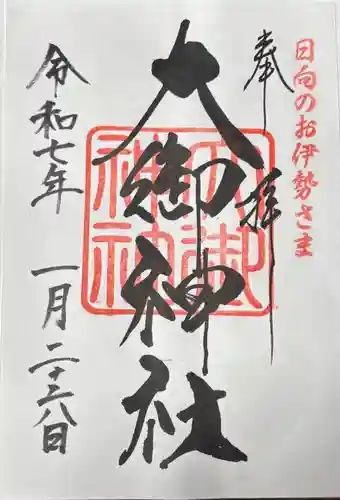 日向のお伊勢さま
奉拝
大御神社
大御神社
令和七年 一月二十八日